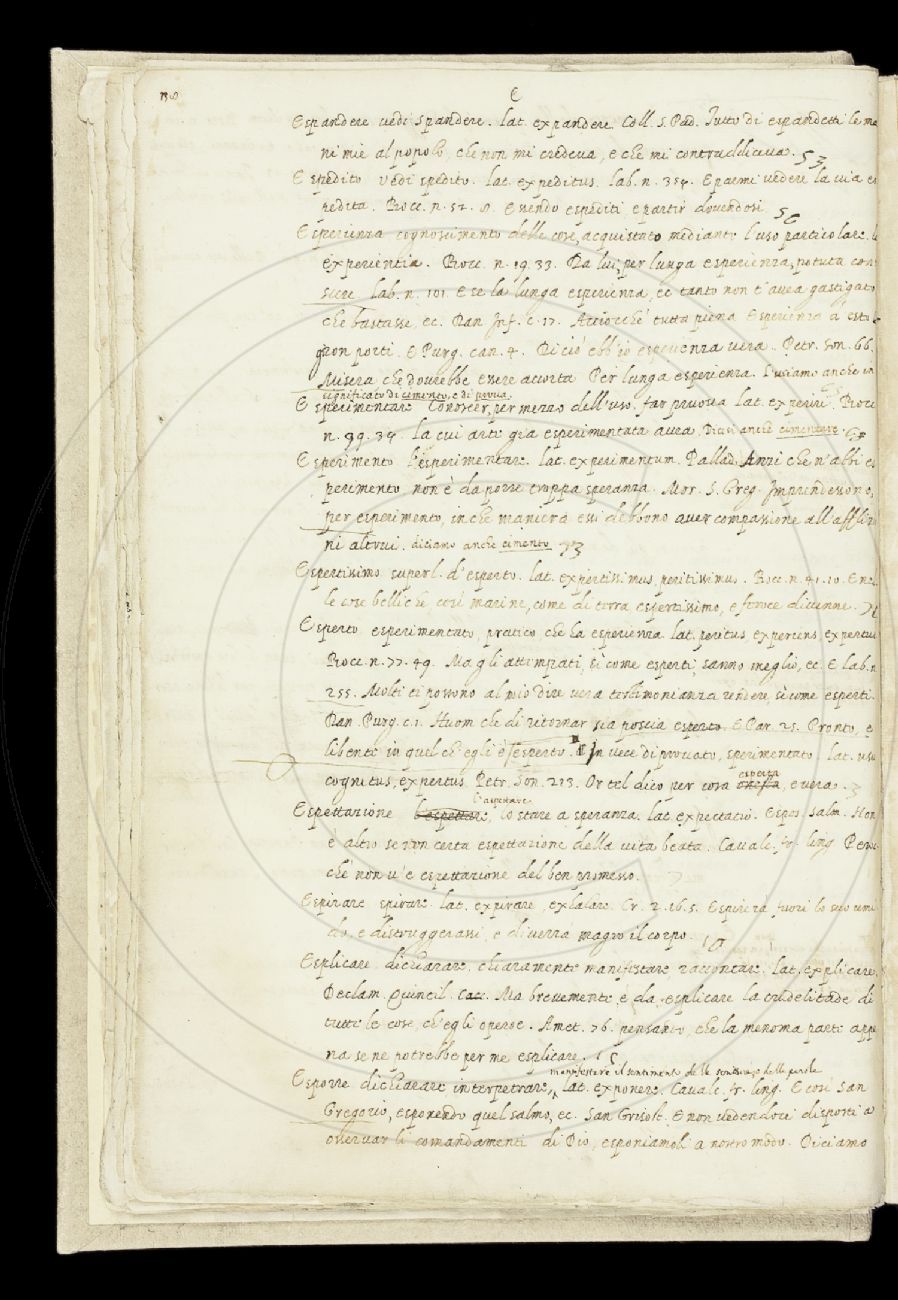 E
Espandere vedi spandere. lat. expandere. Coll. S. Pad. Tutto di espandetti le ma
ni mie al popolo, che non mi credeva, e che mi contraddiceva. 53
Espedito vedi spedito. lat. expeditus. lab. n. 354. E parmi vedere la via es
pedita. Bocc. n. 52. 8. Essendo espediti e partir dovendosi
Esperienza cognoscimento delle cose, acquistato mediante l'uso particolare. l
experientia. Bocc. n. 19. 33. Da lui, per lunga esperienza, potuta con
scere lab. n. 101. E se la lunga esperienza, ec tanto non t'avea gastigato
che bastasse, ec. Dan Inf. c. 17. Acciocché tutta piena Esperienza d'esto
gron porti. E Purg. can. 4. Di ciò ebb'io esperienza vera. Petr. son. 66.
Misera che dovrebbe essere accorta Per lunga esperienza. L'usiamo anche in
significato di cimento, e di prova.
Esperimentare Conoscer, per mezzo dell'uso. far pruova lat. experiri. Bocc
n. 99. 39. la cui arte gia esperimentata avea. Dicesi anche cimentare.
Esperimento l'esperimentare. lat. experimentum. Pallad. Anzi che n'abbi es
perimento non è da porre troppa speranza. Mor. S. Greg. Imprendessono,
per esperimento, in che maniera essi debbono aver compassione all'afflizio
ni altrui. diciamo anche cimento 73
Espertissimo superl. d'esperto. lat. expertissimus, peritissimus. Bocc. n. 41. 10. E nel
le cose belliche, così marine, come di terra espertissimo, e feroce divenne.
Esperto esperimentato, pratico che ha esperienza lat. peritus, experiens, expertus
Bocc. n. 77. 49. Ma gli attempati, sì come esperti, sanno meglio, ec. E lab. n
255. Molti ti possono al mio dire vera testimonianza rendere, sì come esperti.
Dan Purg. c. 1. Huom che di ritornar sia poscia esperto. E Par. 25. Pronto, e
libente in quel ch'egli è esperto. In vece di provato, sperimentato. lat. usu
cognitus, expertus Petr. Son. 213. Or tel dico per cosa onesta esperta, e vera.
Espettazione l'espettare l'aspettare, lo stare a speranza. lat. expectatio. Espos. Salm. Non
è altro se non certa espettazione della vita beata. Cavalc. fr. ling Perci
chè non v'è espettazione del ben promesso.
Espirare spirare. lat. expirare, exhalare. Cr. 2. 16. 5. Espirerà fuori lo suo umi
do, e distruggerassi, e diverrà magro il corpo.
Esplicare dichiarare. chiaramente manifestare raccontare. lat. explicare.
Declam. Quincil. Cac. Ma brevemente è da esplicare la crudelitade di
tutte le cose, ch'egli operoe. Amet. 76. pensando, che la menoma parte appe
na se ne potrebbe per me esplicare. 15
manifestare il sentimento delle sentenze delle parole
Esporre dichiarare interpetrare, lat. exponere. Cavalc. fr. ling. E così San
Gregorio, esponendo quel salmo, ec. San Grisost. E non vedendoci disposti a
osservar li comandamenti di Dio, esponiamoli a nostro modo. Diciamo